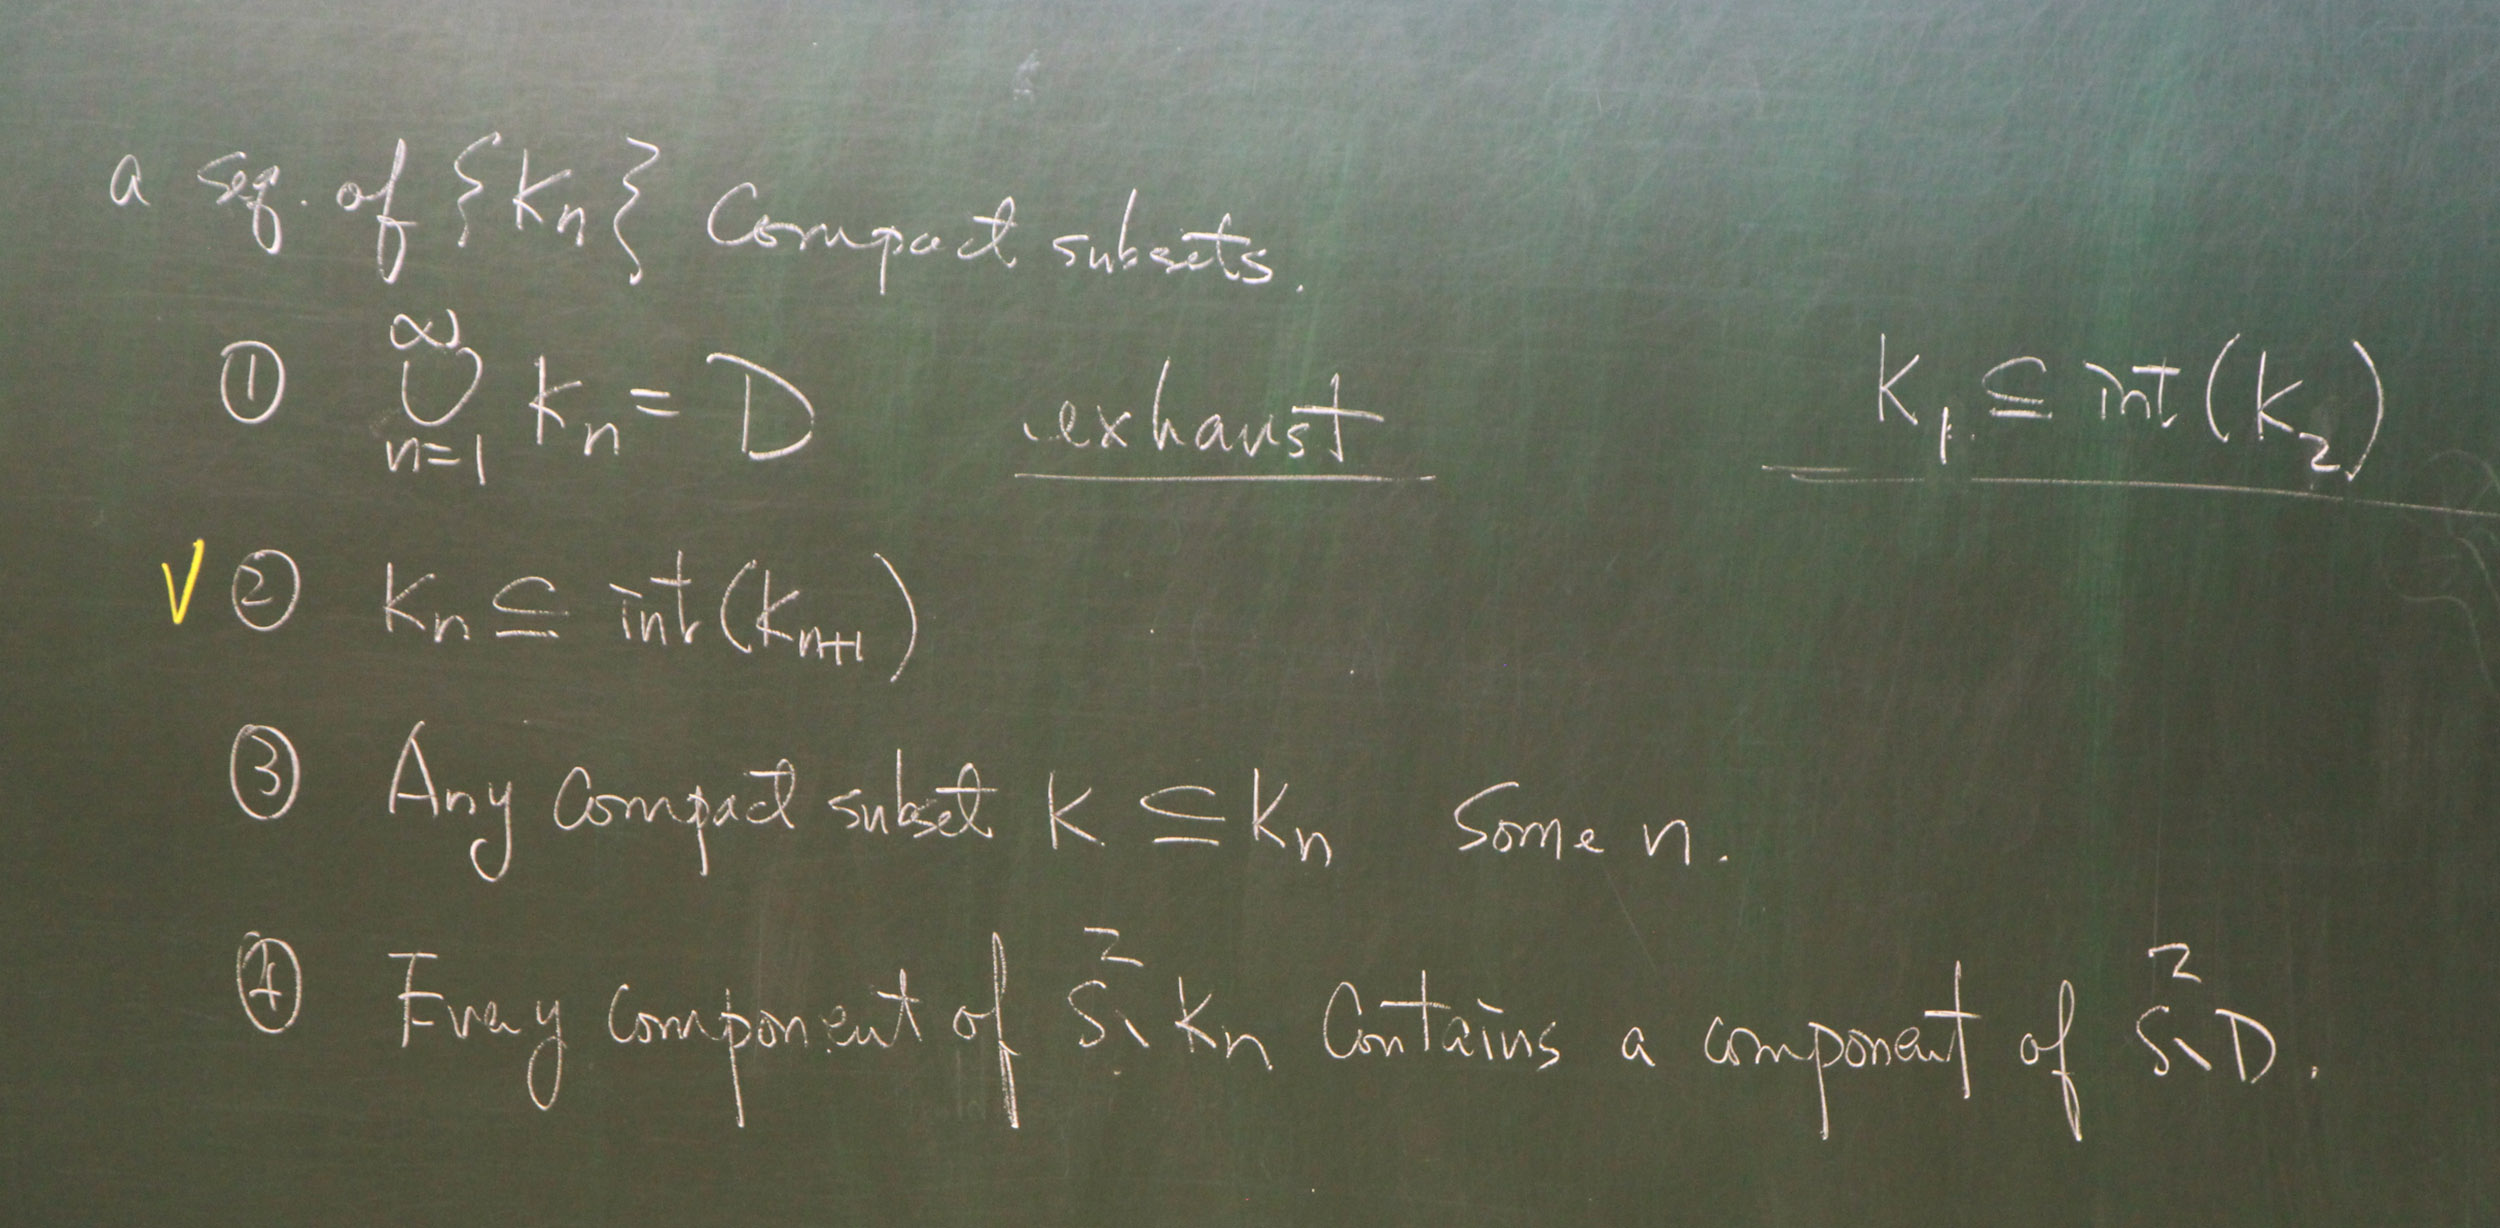 a seq. of {Kn} Compact subsets.
① ∞ ⋃ n=1 Kn = D exhaust K1 ⊆ int(K2)
✓ ② Kn ⊆ int(Kn+1)
③ Any Compact subset K ⊆ Kn Some n.
④ Every Component of S² \ Kn Contains a component of S² \ D.